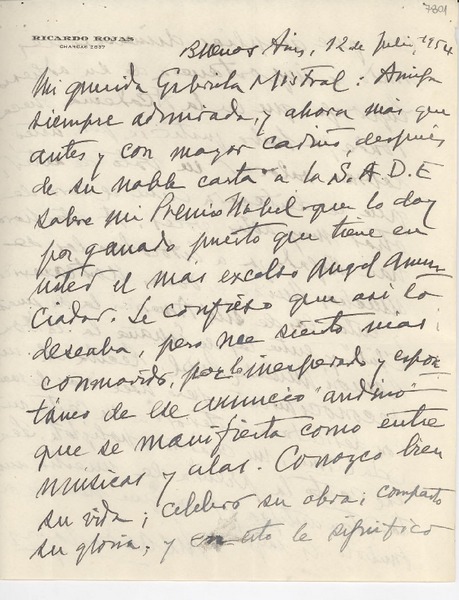 7801
RICARDO ROJAS
CHARCAS 2837
Buenos Aires, 12 de Julio, 1954
Mi querida Gabriela Mistral: Amiga
siempre admirada, y ahora más que
antes y con mayor cariño, después
de su noble carta a la S.A.D.E
sobre mi Premio Nobel que lo doy
por ganado puesto que tiene en
usted el más excelso Angel Anun-
ciador. Le confieso que así lo
deseaba, pero me siento más
conmovido, por lo inesperado y espon-
táneo de ese anuncio "andino"
que se manifiesta como entre
músicas y alas. Conozco bien
su vida; celebro su obra; comparto
su gloria; y en esto le significo